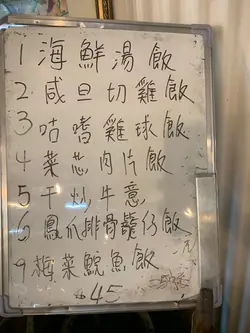 1 海鮮湯飯
2 咸旦切雞飯
3 咕嚕雞球飯
4 菜芯肉片飯
5 干炒牛意
6 鳳爪排骨籠仔飯
9 梅菜鯇魚飯
$45